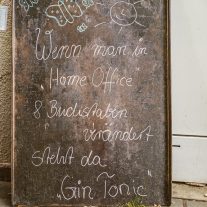 Wenn man in
„Home Office"
8 Buchstaben
verändert
steht da
„Gin Tonic"